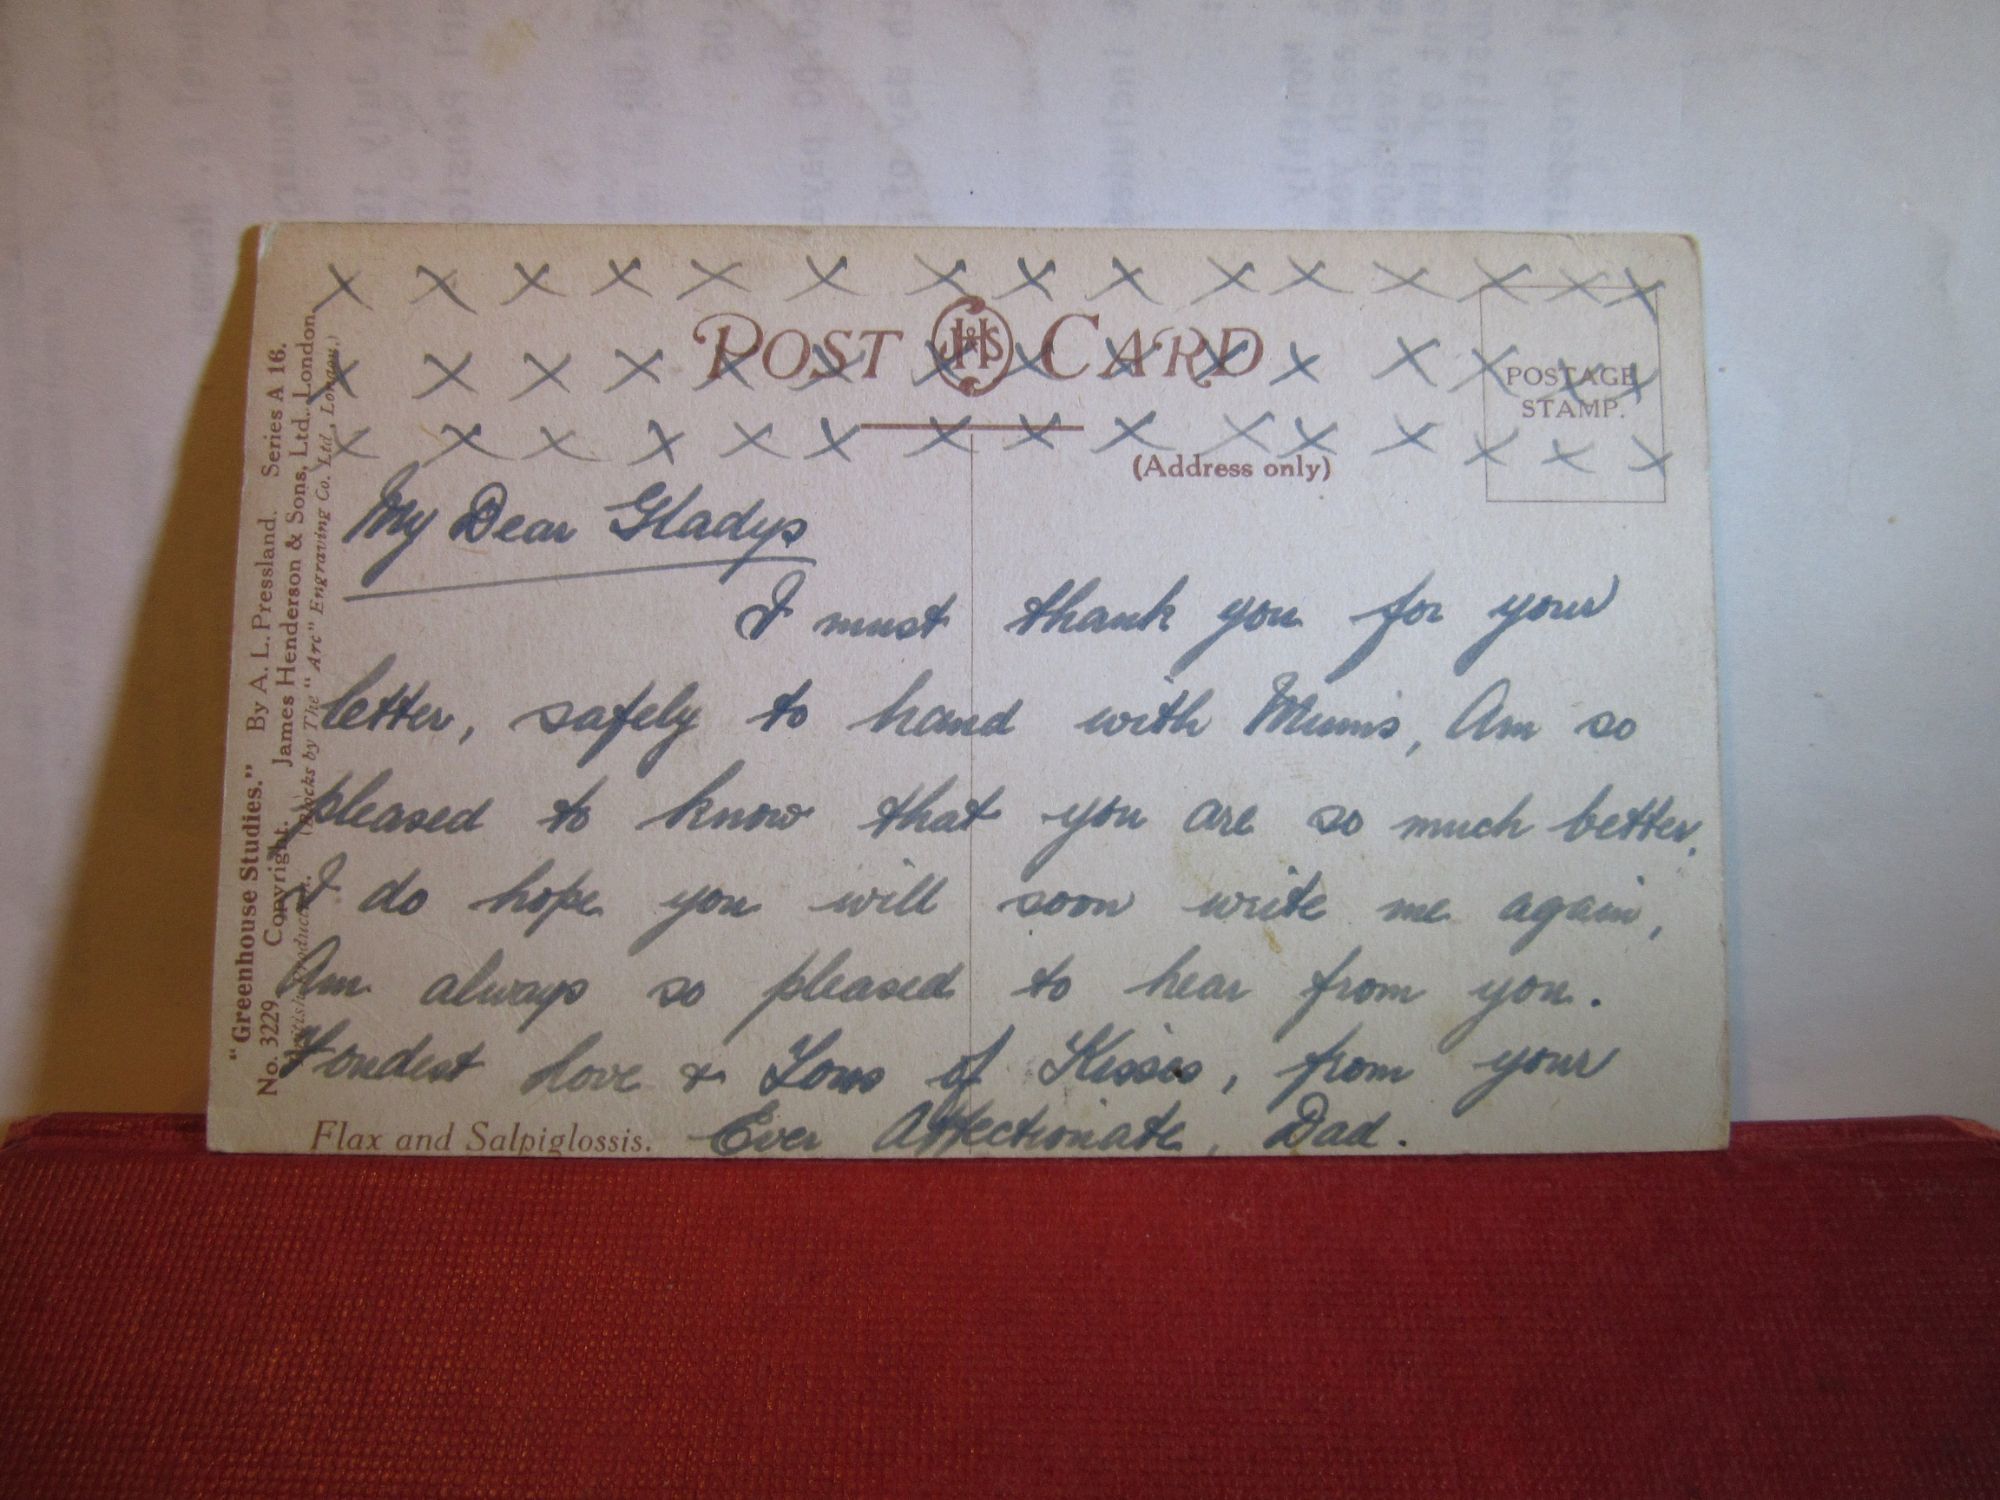 X X X X X X X X X X X X X X X
POST JH&S CARD
X X X X X X X X X X X X X X X
POSTAGE
STAMP.
X X X X X X X X X X X X X X X
(Address only)
My Dear Gladys
I must thank you for your
letter, safely to hand with Mums, Am so
pleased to know that you are so much better.
I do hope you will soon write me again,
Am always so pleased to hear from you.
Fondest love & Tons of Kisses, from your
Ever Affectionate, Dad.
Flax and Salpiglossis.
"Greenhouse Studies." By A. L. Pressland. Series A 16.
No. 3229 Copyright. James Henderson & Sons, Ltd., London.
British Production. (Blocks by The "Arc" Engraving Co. Ltd., London.)